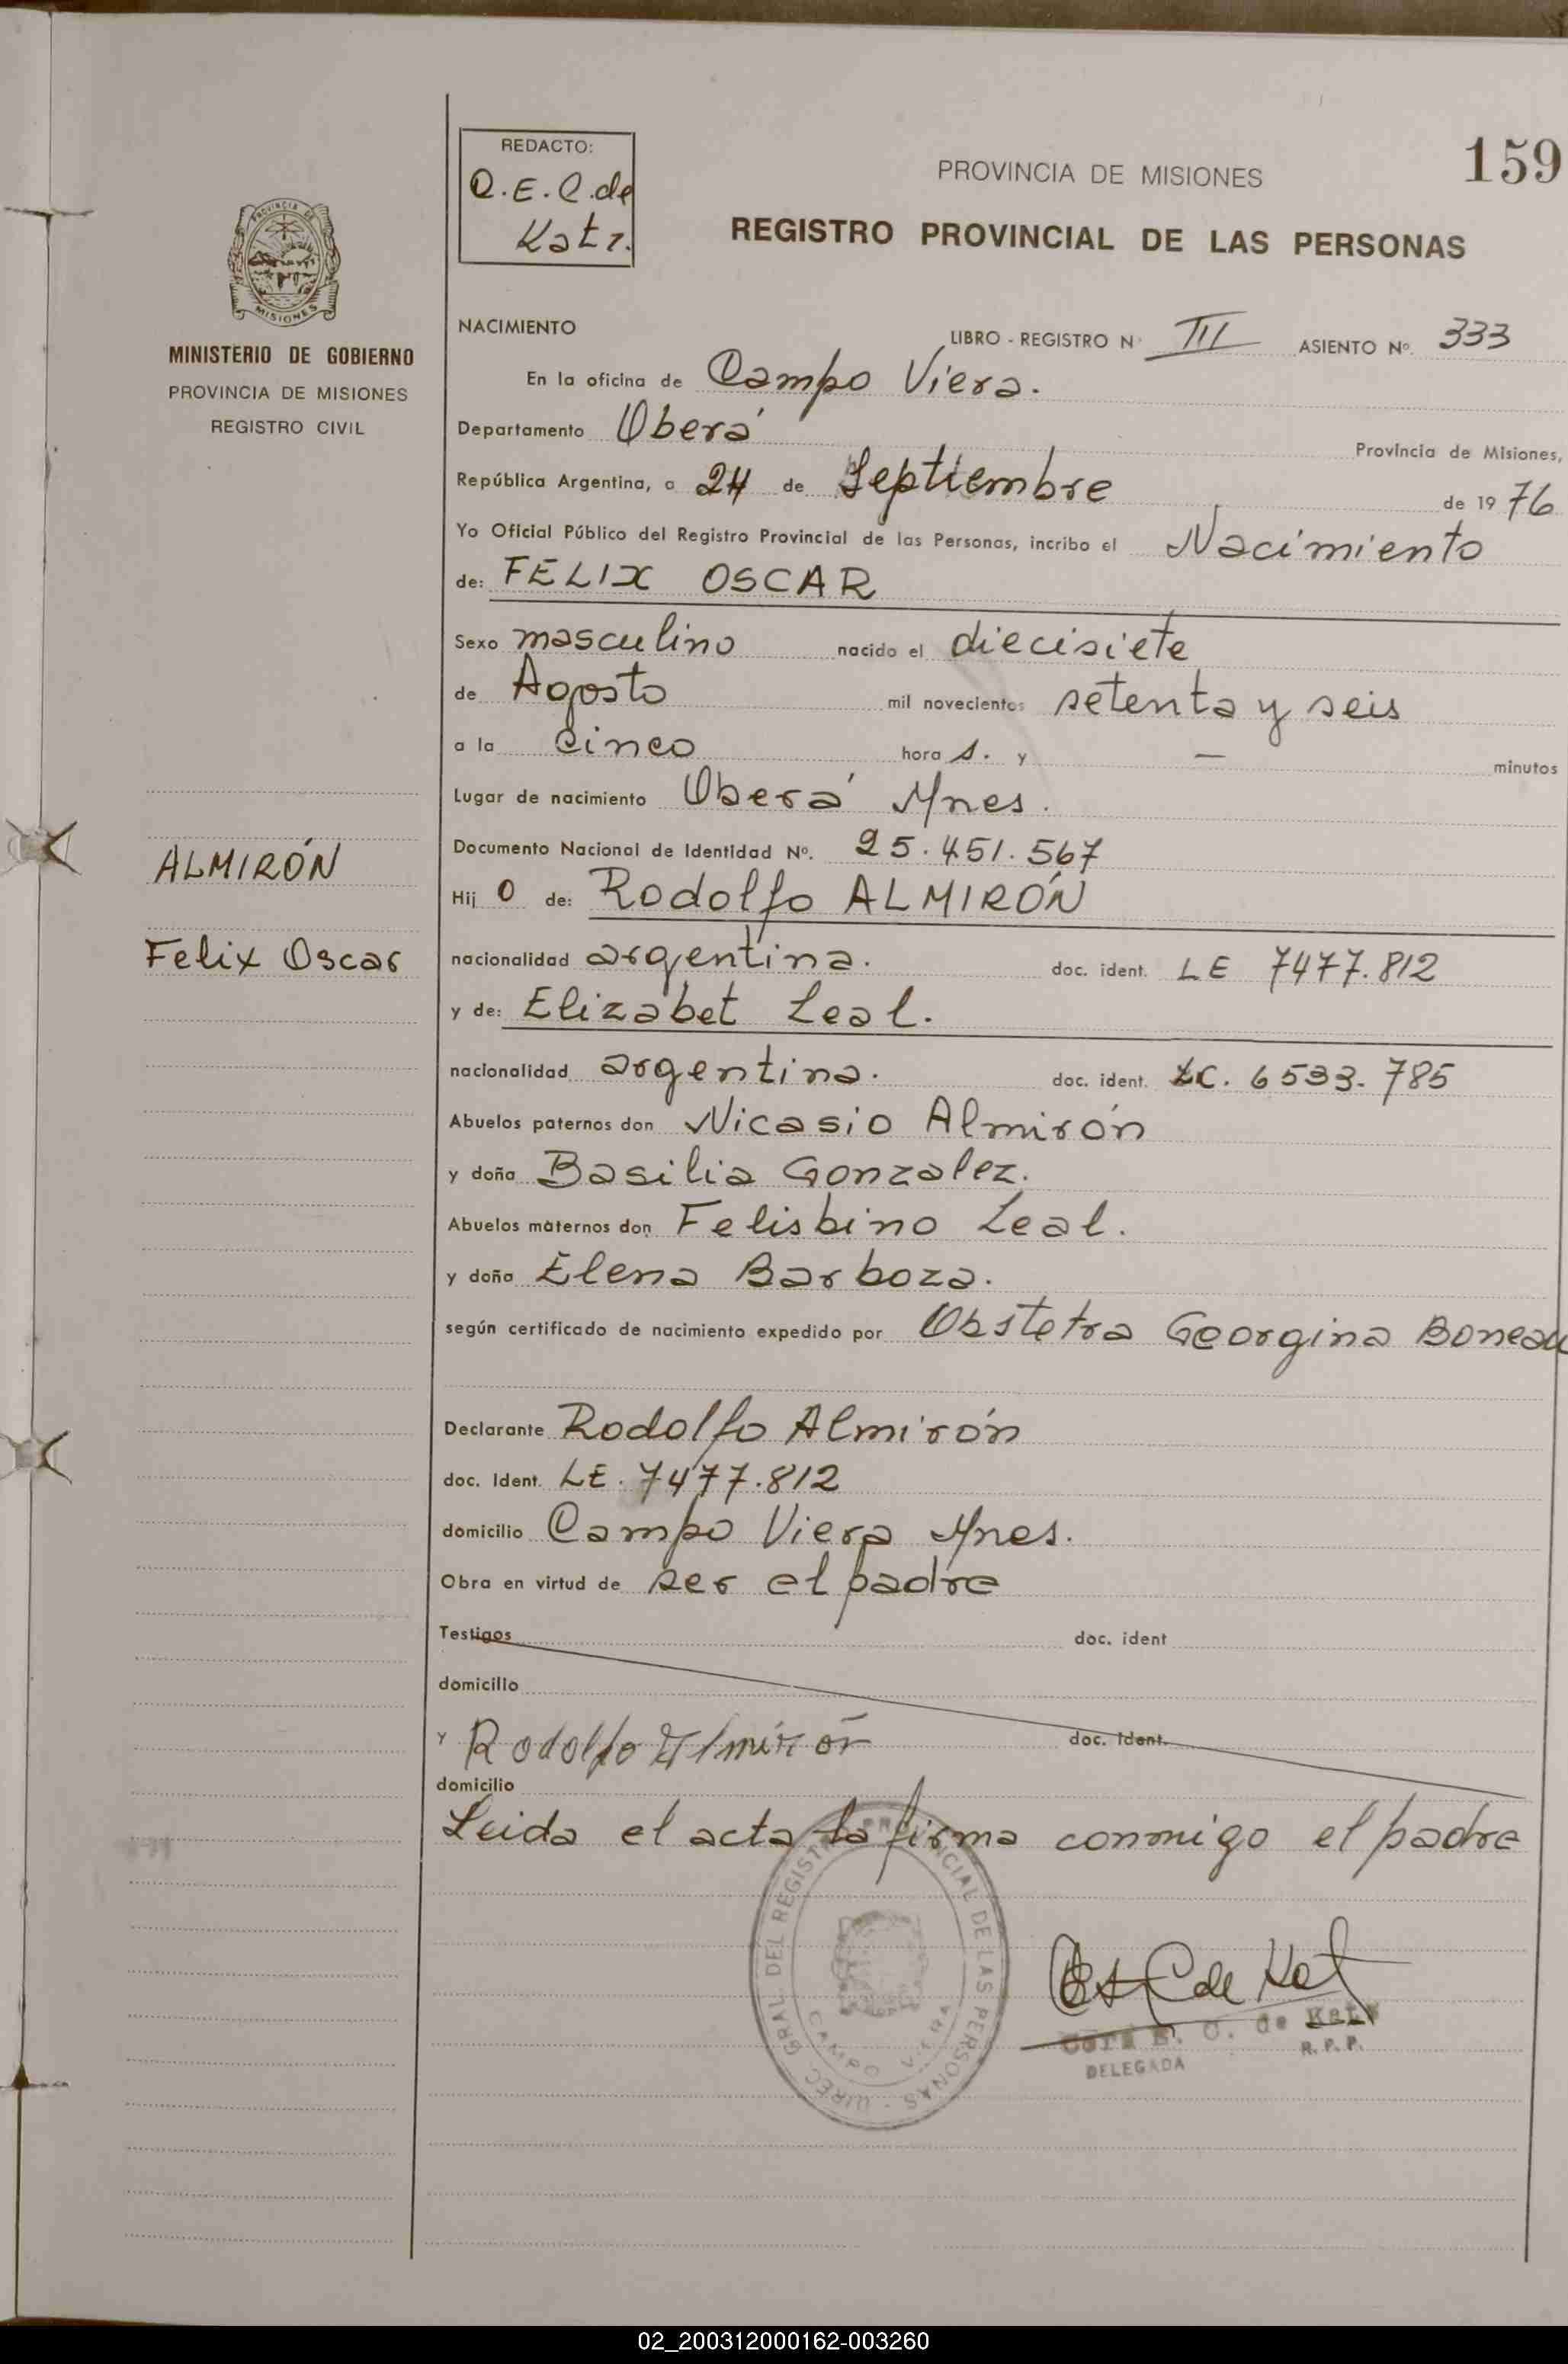 159
REDACTO:
C.E.C. de
Katz.
PROVINCIA DE MISIONES
REGISTRO PROVINCIAL DE LAS PERSONAS
PROVINCIA DE
MISIONES
MINISTERIO DE GOBIERNO
PROVINCIA DE MISIONES
REGISTRO CIVIL
NACIMIENTO
LIBRO - REGISTRO Nº III ASIENTO Nº. 333
En la oficina de Campo Viera.
Departamento Oberá Provincia de Misiones,
República Argentina, a 24 de Septiembre de 1976
Yo Oficial Público del Registro Provincial de las Personas, incribo el Nacimiento
de: FELIX OSCAR
Sexo masculino nacido el diecisiete
de Agosto mil novecientos setenta y seis
a la cinco hora s. y — minutos
Lugar de nacimiento Oberá Mnes.
Documento Nacional de Identidad Nº. 25.451.567
ALMIRÓN
Hij o de: Rodolfo ALMIRÓN
Felix Oscar
nacionalidad argentina. doc. ident. LE 7477.812
y de: Elizabet Leal.
nacionalidad argentina. doc. ident. LC. 6533.785
Abuelos paternos don Nicasio Almirón
y doña Basilia Gonzalez.
Abuelos maternos don Felisbino Leal.
y doña Elena Barboza.
según certificado de nacimiento expedido por Obstetra Georgina Boneau
Declarante Rodolfo Almirón
doc. Ident. LE. 7477.812
domicilio Campo Viera Mnes.
Obra en virtud de ser el padre
Testigos doc. ident
domicilio
y Rodolfo Almirón doc. ident.
domicilio
Leida el acta la firma conmigo el padre
GRAL. DEL REGISTRO PROVINCIAL DE LAS PERSONAS - DIREC.
CAMPO VIERA
C de Kat
E. C. de Katz
DELEGADA R.P.P.
02_200312000162-003260